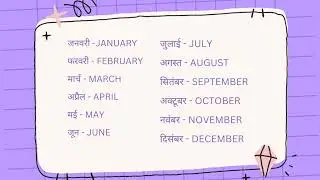 जनवरी -JANUARY
फरवरी - FEBRUARY
मार्च - MARCH
अप्रैल - APRIL
मई - MAY
जून - JUNE
जुलाई - JULY
अगस्त - AUGUST
सितंबर - SEPTEMBER
अक्टूबर - OCTOBER
नवंबर - NOVEMBER
दिसंबर - DECEMBER